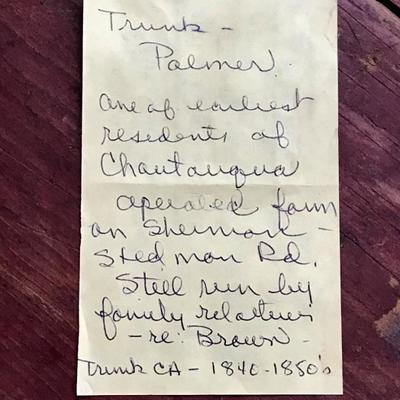 Trunk -
Palmer.
one of earliest
residents of
Chautauqua
operated farm
on Sherman -
Stedman Rd.
Still run by
family relatives
- re: Brown -
Trunk CA - 1840-1850's